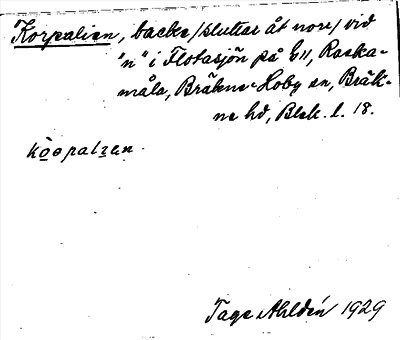 Korpalien, backe /sluttar åt norr/ vid
"n" i Flotasjön på E11, Roska-
måla, Bräkne-Hoby sn, Bräk-
ne hd, Blek. l. 18.
Tage Ahldén 1929